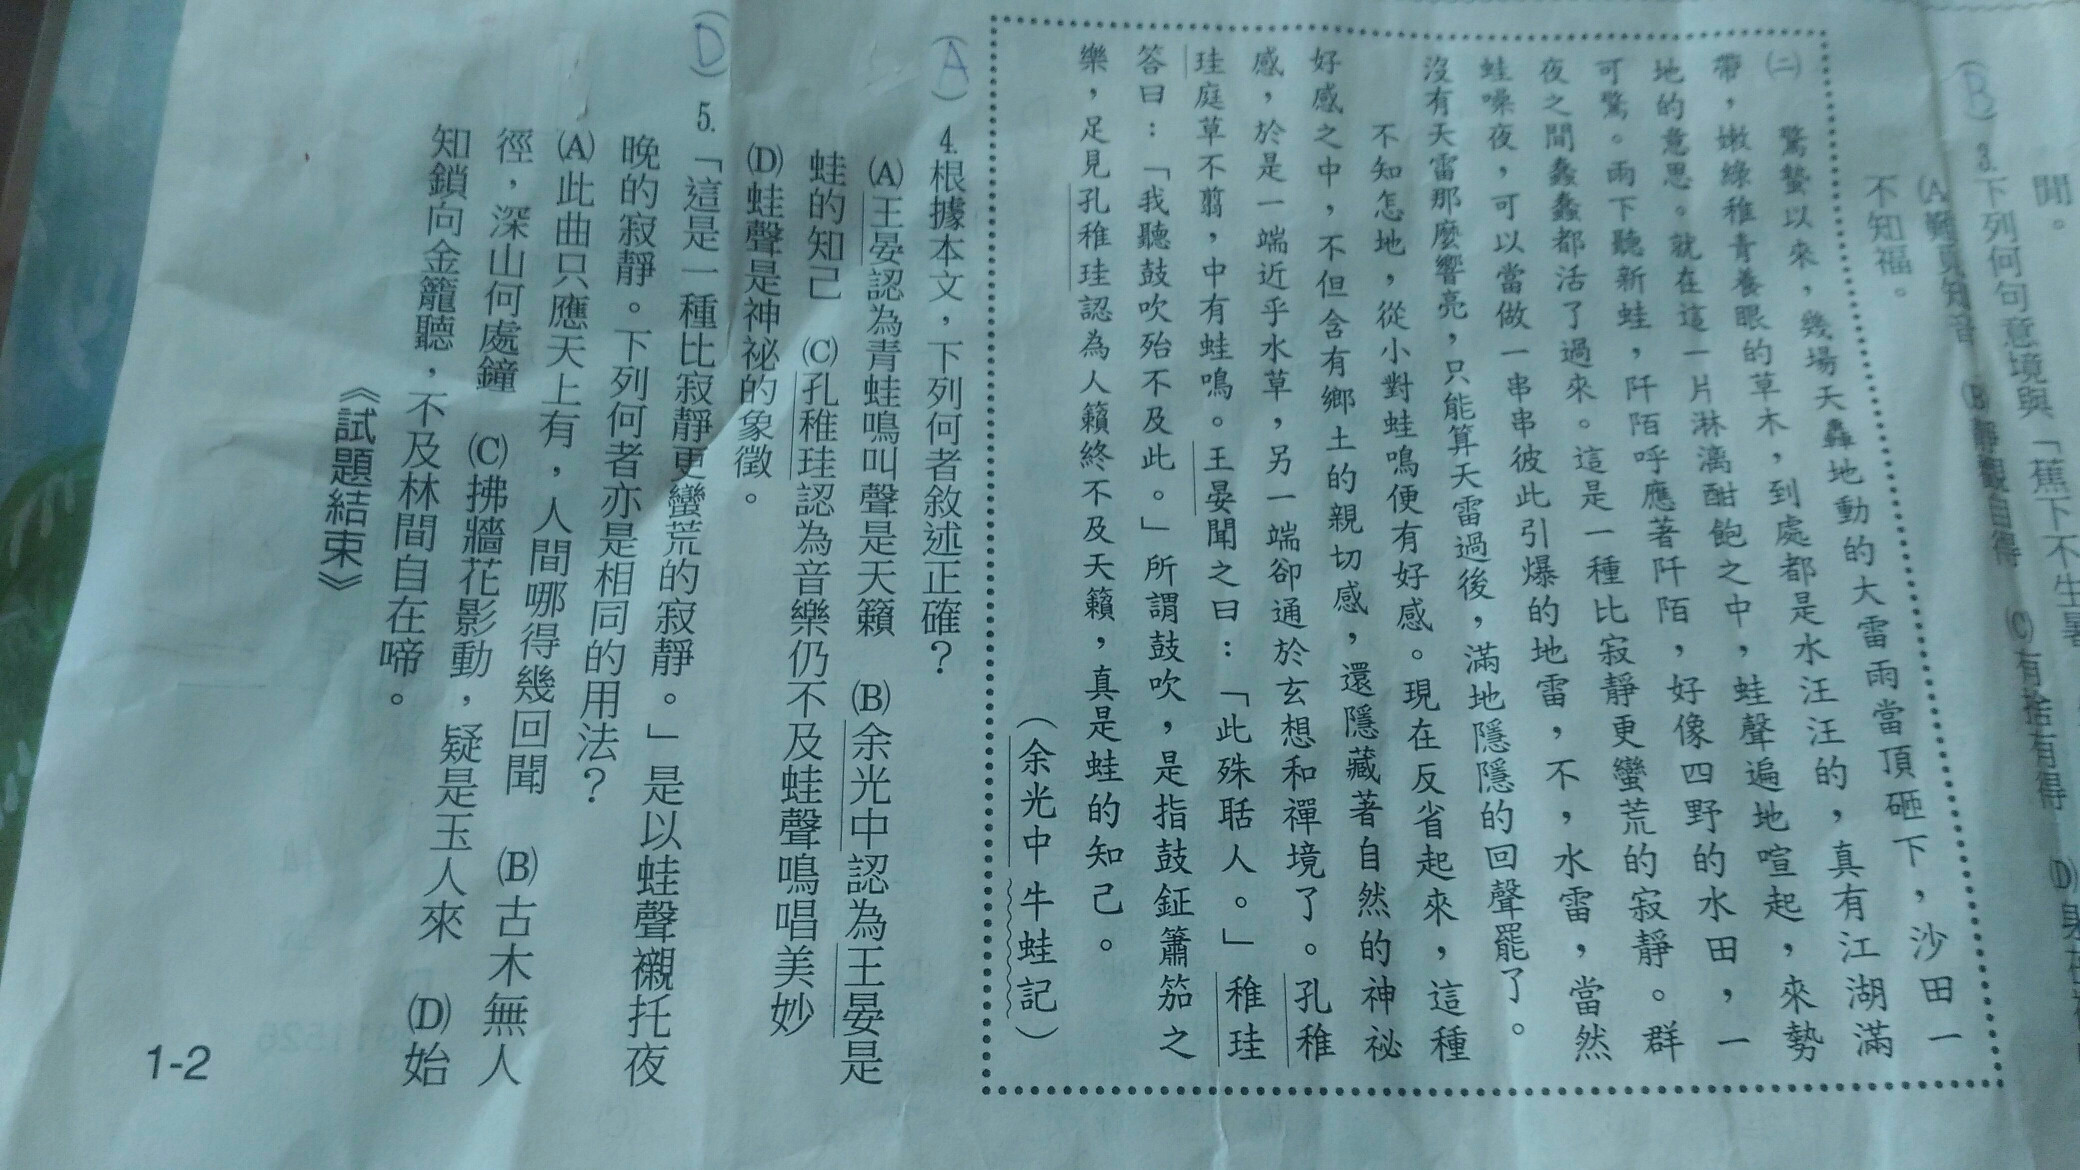 聞。
(B)3.下列何句意境與「蕉下不生暑
(B)靜觀自得 (C)有捨有得 (D)
不知福。
㈡ 驚蟄以來，幾場天轟地動的大雷雨當頂砸下，沙田一
帶，嫩綠稚青養眼的草木，到處都是水汪汪的，真有江湖滿
地的意思。就在這一片淋漓酣飽之中，蛙聲遍地喧起，來勢
可驚。雨下聽新蛙，阡陌呼應著阡陌，好像四野的水田，一
夜之間蠢蠢都活了過來。這是一種比寂靜更蠻荒的寂靜。群
蛙噪夜，可以當做一串串彼此引爆的地雷，不，水雷，當然
沒有天雷那麼響亮，只能算天雷過後，滿地隱隱的回聲罷了。
不知怎地，從小對蛙鳴便有好感。現在反省起來，這種
好感之中，不但含有鄉土的親切感，還隱藏著自然的神祕
感，於是一端近乎水草，另一端卻通於玄想和禪境了。孔稚
珪庭草不翦，中有蛙鳴。王晏聞之曰：「此殊聒人。」稚珪
答曰：「我聽鼓吹殆不及此。」所謂鼓吹，是指鼓鉦簫笳之
樂，足見孔稚珪認為人籟終不及天籟，真是蛙的知己。
（余光中 牛蛙記）
(A)4.根據本文，下列何者敘述正確？
(A)王晏認為青蛙鳴叫聲是天籟 (B)余光中認為王晏是
蛙的知己 (C)孔稚珪認為音樂仍不及蛙聲鳴唱美妙
(D)蛙聲是神祕的象徵。
(D)5.「這是一種比寂靜更蠻荒的寂靜。」是以蛙聲襯托夜
晚的寂靜。下列何者亦是相同的用法？
(A)此曲只應天上有，人間哪得幾回聞 (B)古木無人
徑，深山何處鐘 (C)拂牆花影動，疑是玉人來 (D)始
知鎖向金籠聽，不及林間自在啼。
《試題結束》
1-2